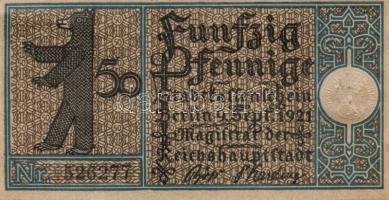 50
Fünfzig
Pfennige
Stadtkassenschein
Berlin 9. Sept. 1921
Magistrat der
Reichshauptstadt
Nr. 526277